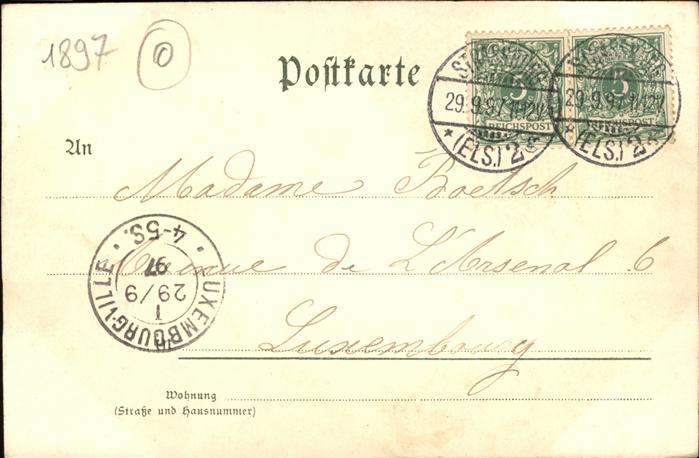 1897 0
Postkarte
5 5
REICHSPOST REICHSPOST
29.9.97. 29.9.97.
*(ELS.)*2 *(ELS.)*2
An
Madame Boetsch
Avenue de L'Arsenal 6
LUXEMBOURG-VILLE
4-5S.
97
29/9
1
Luxembourg
Wohnung
(Straße und Hausnummer)